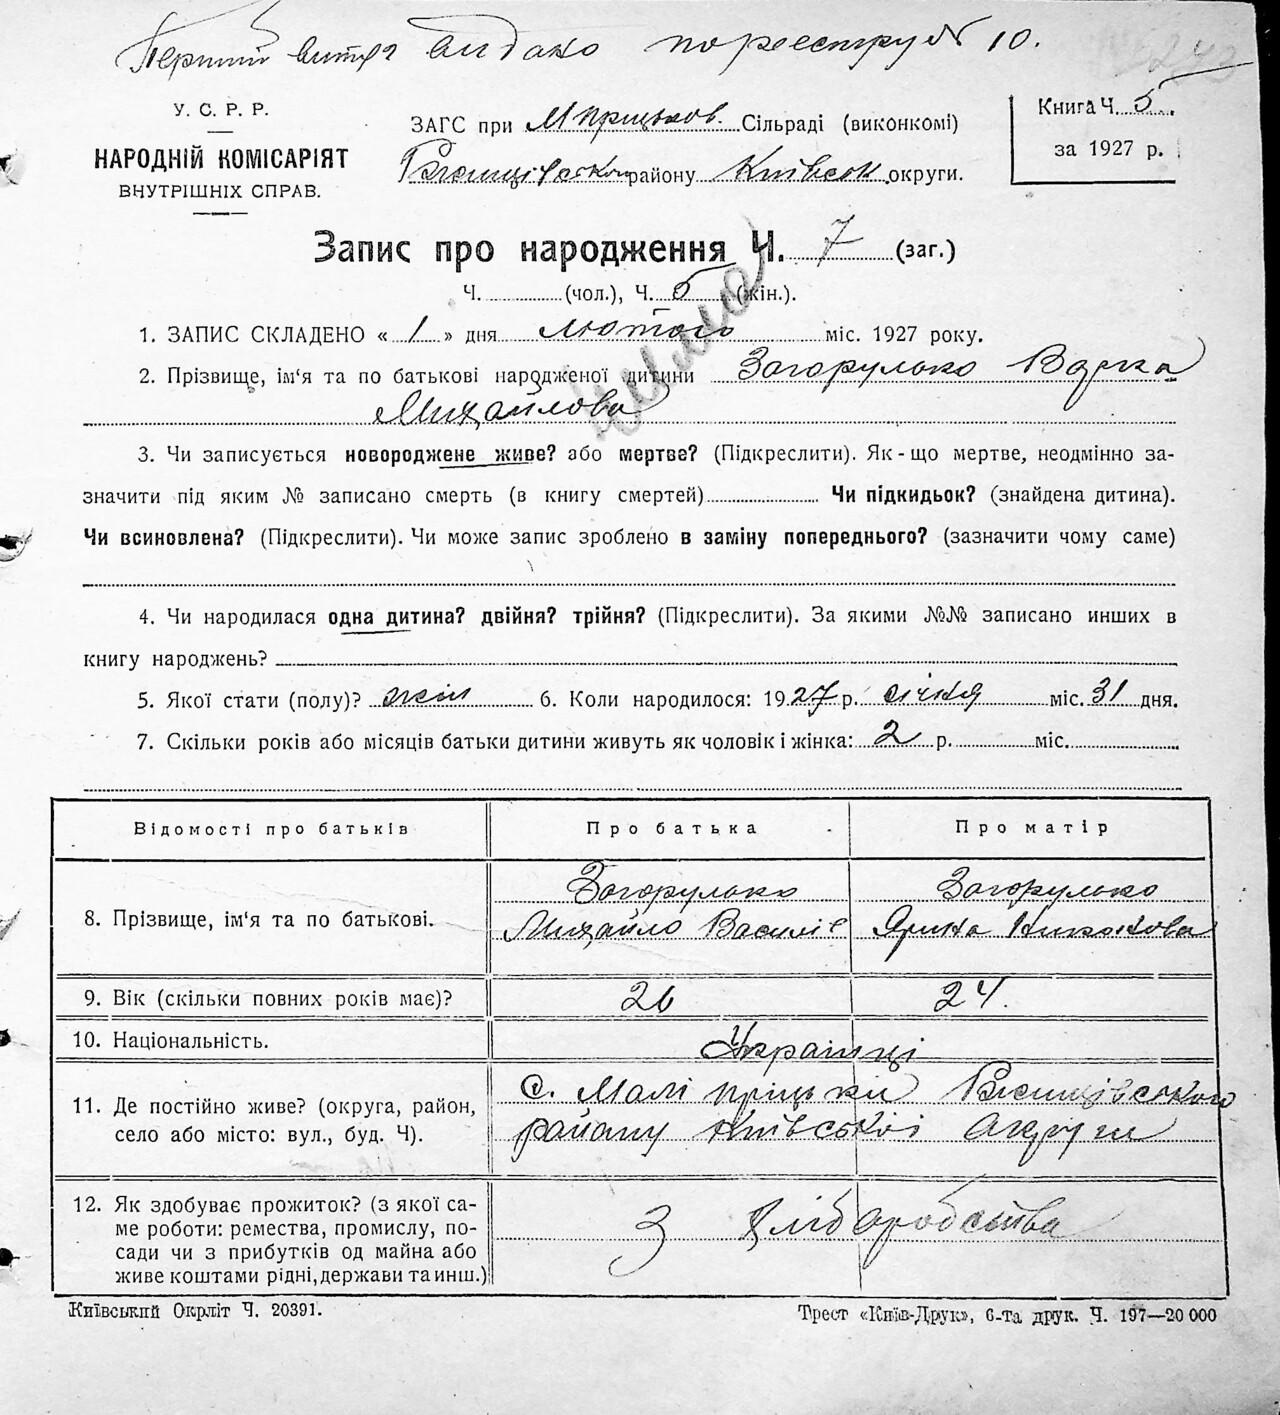 Перший витяг видано по реестру № 10.
У. С. Р. Р.
НАРОДНІЙ КОМІСАРІЯТ
ВНУТРІШНІХ СПРАВ.
ЗАГС при М Пріцьков. Сільраді (виконкомі)
Ржищівськом району Київськ округи.
Книга Ч. 5
за 1927 р.
Запис про народження Ч. 7 (заг.)
Ч. (чол.), Ч. 5 (жін.).
1. ЗАПИС СКЛАДЕНО « 1 » дня лютого міс. 1927 року.
2. Прізвище, ім'я та по батькові народженої дитини Загорулько Варка
Михайлова
3. Чи записується новороджене живе? або мертве? (Підкреслити). Як-що мертве, неодмінно за-
значити під яким № записано смерть (в книгу смертей) Чи підкидьок? (знайдена дитина).
Чи всиновлена? (Підкреслити). Чи може запис зроблено в заміну попереднього? (зазначити чому саме)
4. Чи народилася одна дитина? двійня? трійня? (Підкреслити). За якими №№ записано инших в
книгу народжень?
5. Якої стати (полу)? жін 6. Коли народилося: 1927 р. січня міс. 31 дня.
7. Скільки років або місяців батьки дитини живуть як чоловік і жінка: 2 р. міс.
Відомості про батьків Про батька Про матір
8. Прізвище, ім'я та по батькові. Загорулько Загорулько
Михайло Василів Ярина Никонова
9. Вік (скільки повних років має)? 26 24.
10. Національність. Українці
11. Де постійно живе? (округа, район,
село або місто: вул., буд. Ч).
с. Малі Пріцьки Ржищівського
району Київської Округи
12. Як здобуває прожиток? (з якої са-
ме роботи: ремества, промислу, по-
сади чи з прибутків од майна або
живе коштами рідні, держави та инш.)
З хліборобства
Київський Окрліт Ч. 20391.
Трест «Київ-Друк», 6-та друк. Ч. 197—20 000